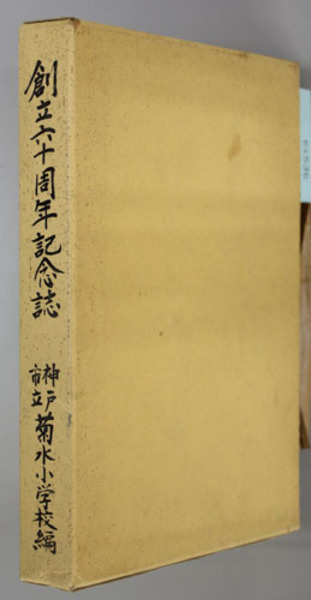 創立六十周年記念誌
神戸市立菊水小学校編